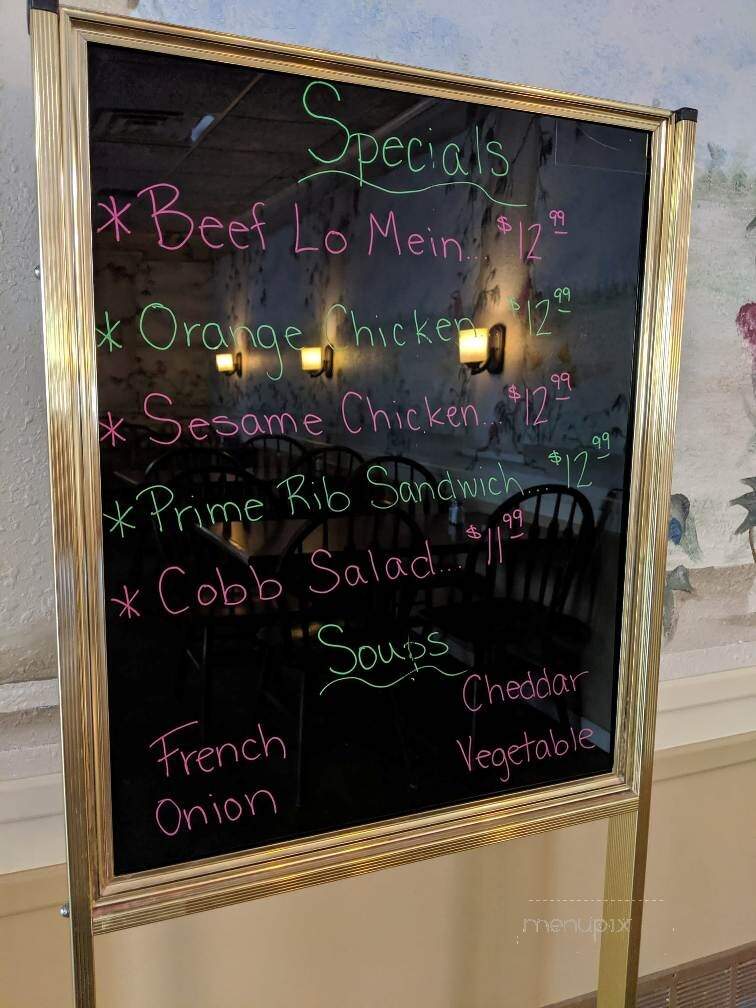 Specials
* Beef Lo Mein... $12.99
* Orange Chicken $12.99
* Sesame Chicken... $12.99
* Prime Rib Sandwich... $12.99
* Cobb Salad... $11.99
Soups
French Onion
Cheddar Vegetable
menupix